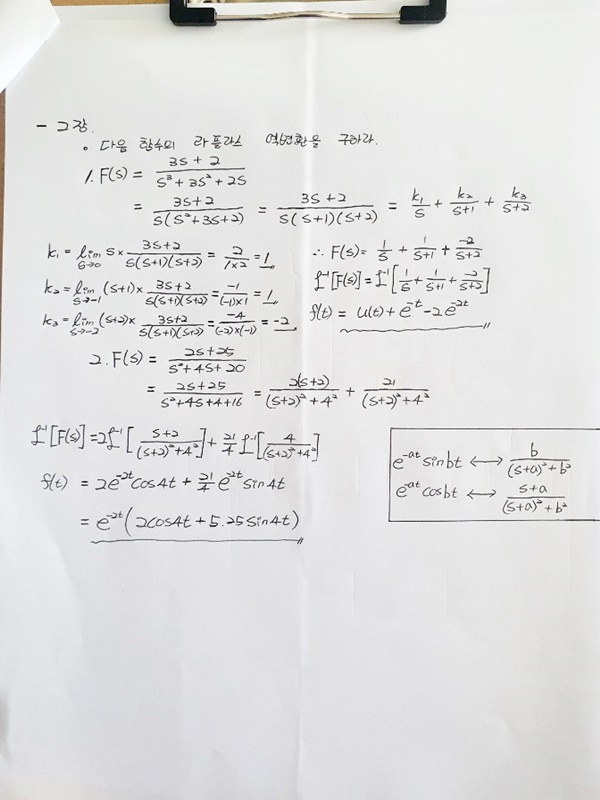 - 그장.
◦ 다음 함수의 라플라스 역변환을 구하라.
1. F(s) = (3s+2)/(s³+3s²+2s)
= (3s+2)/(s(s²+3s+2)) = (3s+2)/(s(s+1)(s+2)) = k₁/s + k₂/(s+1) + k₃/(s+2)
k₁ = lim_(s→0) s × (3s+2)/(s(s+1)(s+2)) = 2/(1×2) = 1
k₂ = lim_(s→-1) (s+1) × (3s+2)/(s(s+1)(s+2)) = -1/((-1)×1) = 1
k₃ = lim_(s→-2) (s+2) × (3s+2)/(s(s+1)(s+2)) = -4/((-2)×(-1)) = -2
∴ F(s) = 1/s + 1/(s+1) + -2/(s+2)
ℒ⁻¹[F(s)] = ℒ⁻¹[1/s + 1/(s+1) + -2/(s+2)]
f(t) = u(t) + e^(-t) - 2e^(-2t)
2. F(s) = (2s+25)/(s²+4s+20)
= (2s+25)/(s²+4s+4+16) = 2(s+2)/((s+2)²+4²) + 21/((s+2)²+4²)
ℒ⁻¹[F(s)] = 2ℒ⁻¹[(s+2)/((s+2)²+4²)] + 21/4 ℒ⁻¹[4/((s+2)²+4²)]
f(t) = 2e^(-2t)cos4t + 21/4 e^(-2t)sin4t
= e^(-2t)(2cos4t + 5.25sin4t)
e^(-at) sinbt ⟷ b/((s+a)²+b²)
e^(-at) cosbt ⟷ (s+a)/((s+a)²+b²)